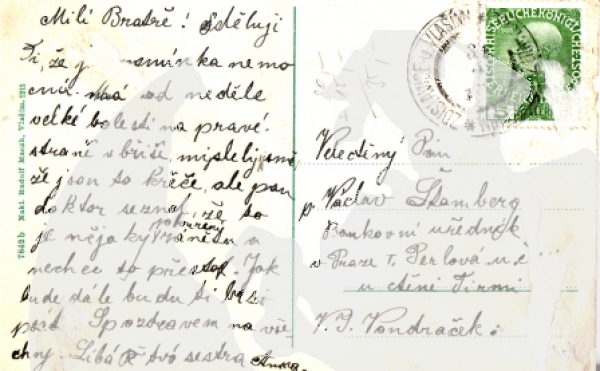 Milí Bratře! Sděluji
Ti, že je maminka nemo
cná. Má od neděle
velké bolesti na pravé
straně v břiše, mysleli sme
že jsou to křeče, ale pan
doktor seznal, že to
je nějaký zánět a
nechce to přestat. Jak
bude dále budu ti
psát S pozdravem na vše
chny. Líbá tvá sestra Anna.
7842b Nakl. Rudolf Macák, Vlašim. 1913
Velectěný Pan
p. Václav Štamberg
Bankovní úředník
v Praze I, Perlová u. č.
u ctěné Firmi
V. J. Vondráček